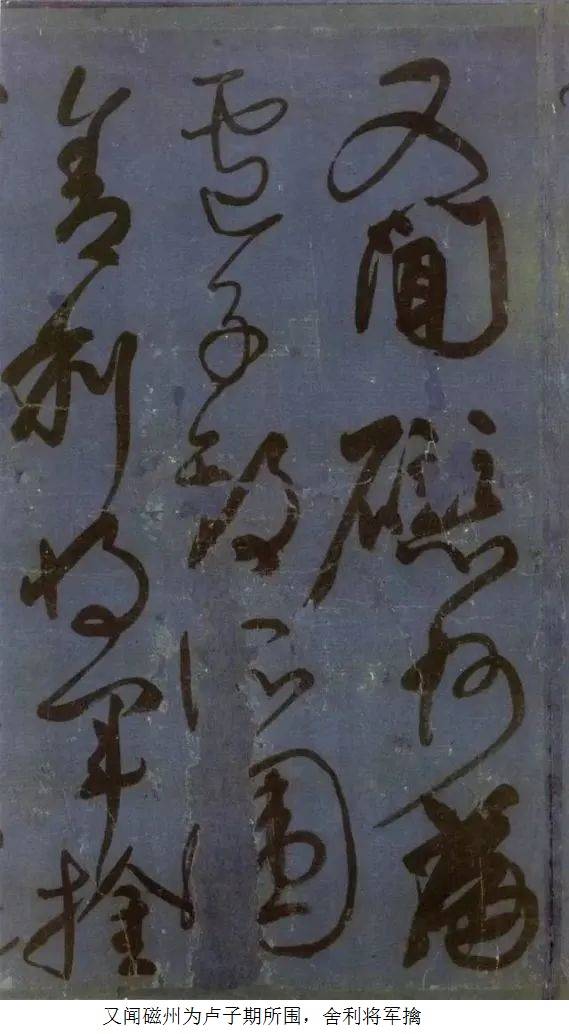 又聞磁州為
盧子期所圍
舍利將軍擒
又闻磁州为卢子期所围，舍利将军擒